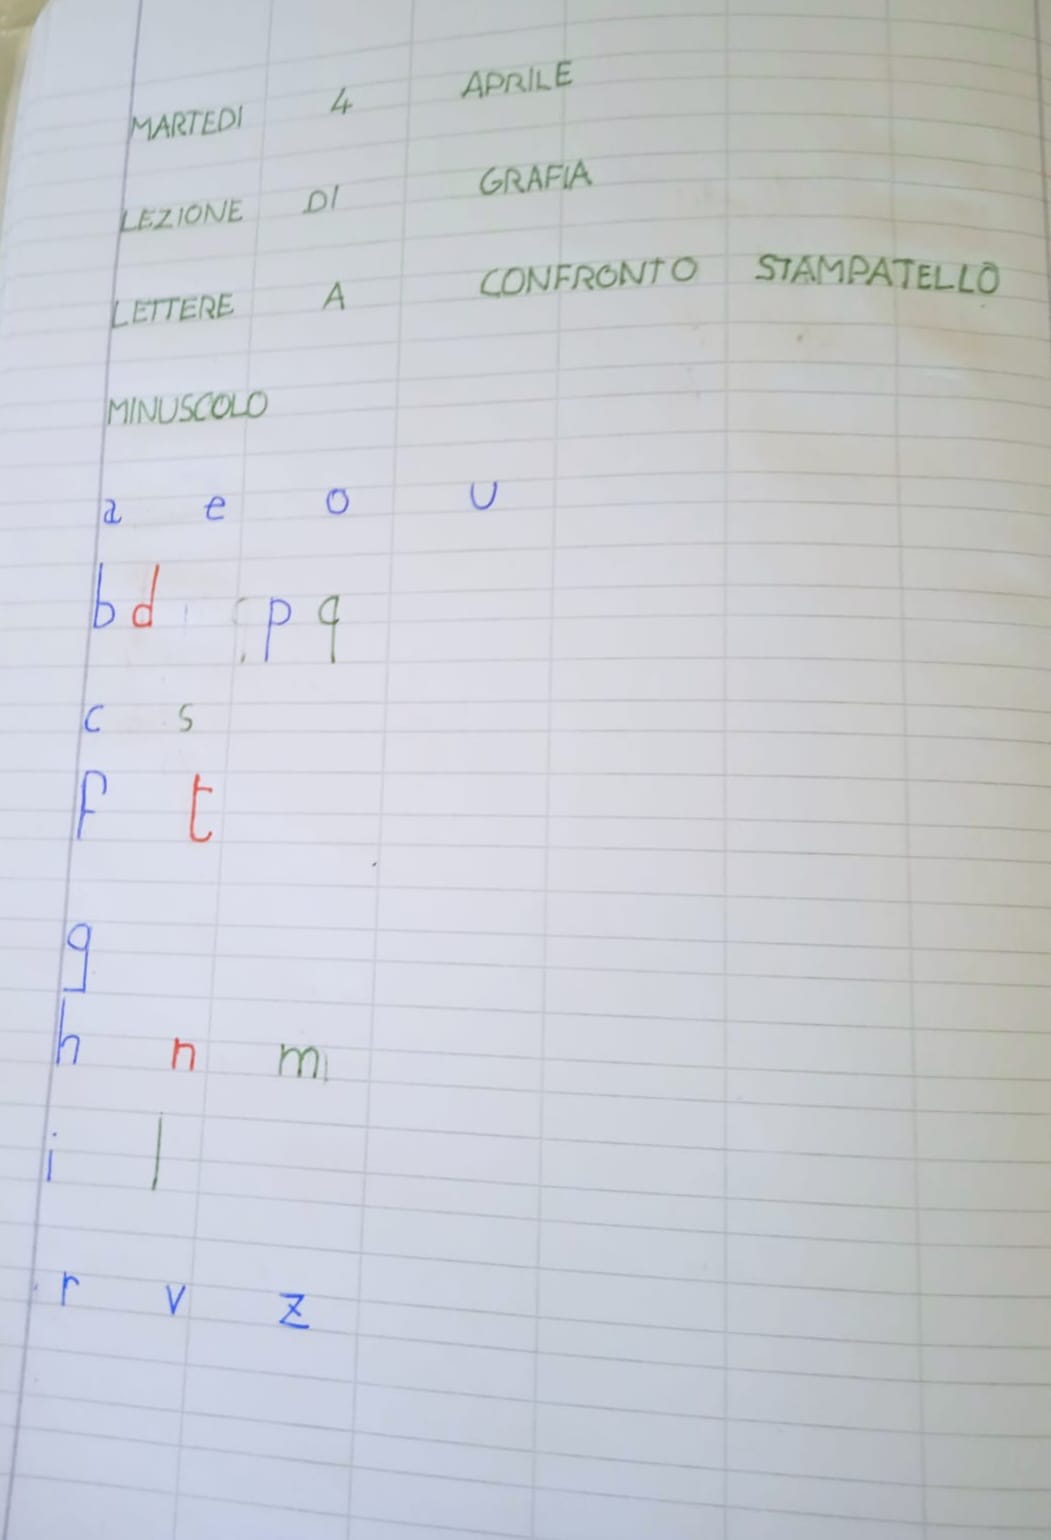 MARTEDI 4 APRILE
LEZIONE DI GRAFIA
LETTERE A CONFRONTO STAMPATELLO
MINUSCOLO
a e o u
b d p q
c s
f t
g
h n m
i l
r v z